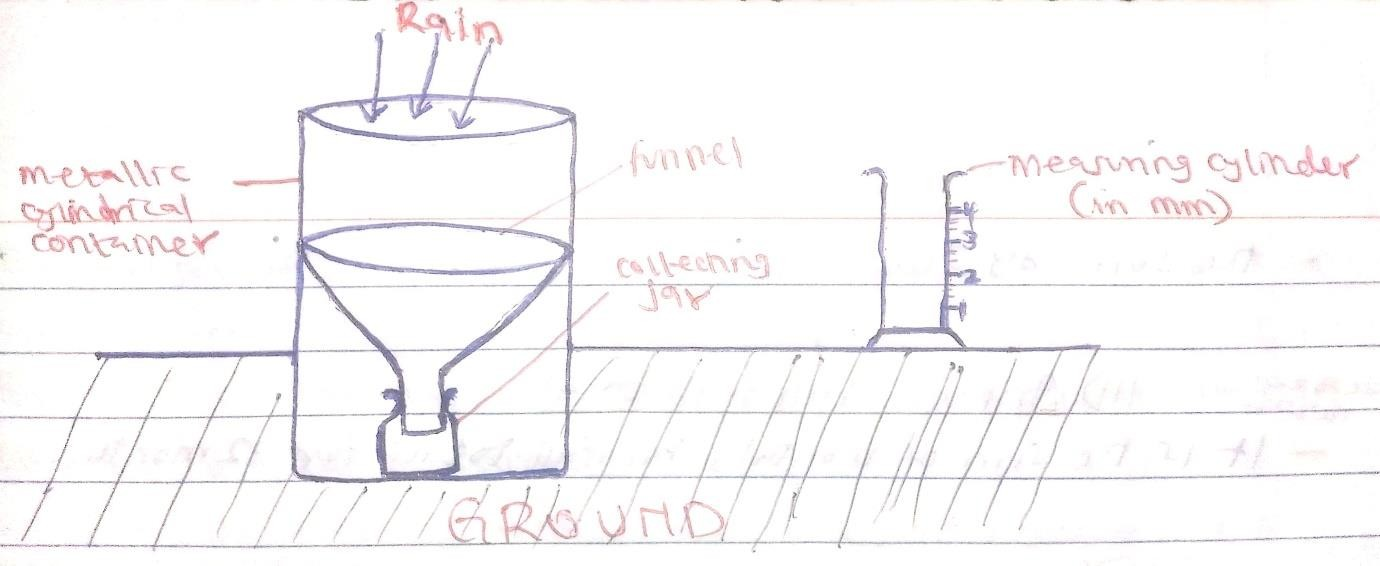 Rain
metallic
cylindrical
container
funnel
collecting
jar
measuring cylinder
(in mm)
4
3
2
1
GROUND